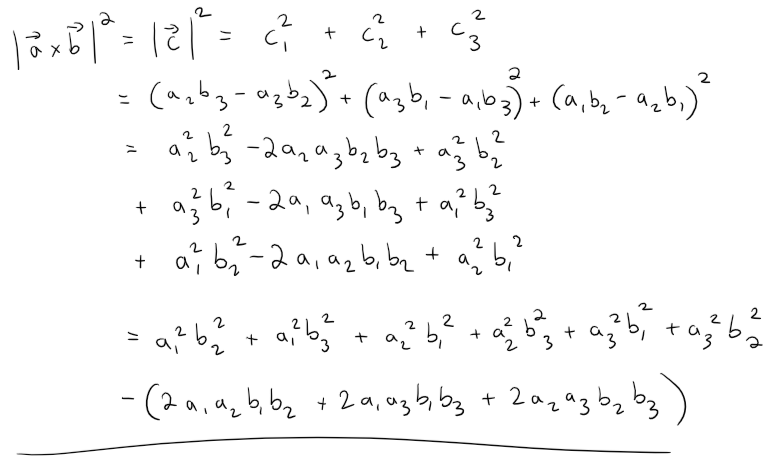 |a⃗ × b⃗|² = |c⃗|² = c₁² + c₂² + c₃²
= (a₂b₃ - a₃b₂)² + (a₃b₁ - a₁b₃)² + (a₁b₂ - a₂b₁)²
= a₂²b₃² - 2a₂a₃b₂b₃ + a₃²b₂²
+ a₃²b₁² - 2a₁a₃b₁b₃ + a₁²b₃²
+ a₁²b₂² - 2a₁a₂b₁b₂ + a₂²b₁²
= a₁²b₂² + a₁²b₃² + a₂²b₁² + a₂²b₃² + a₃²b₁² + a₃²b₂²
- (2a₁a₂b₁b₂ + 2a₁a₃b₁b₃ + 2a₂a₃b₂b₃)